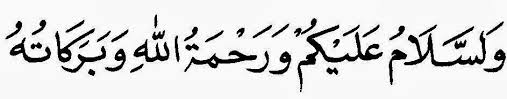 وَلسَّلَامُ عَلَيْكُمْ وَرَحْمَةُ اللهِ وَبَرَكَاتُهُ